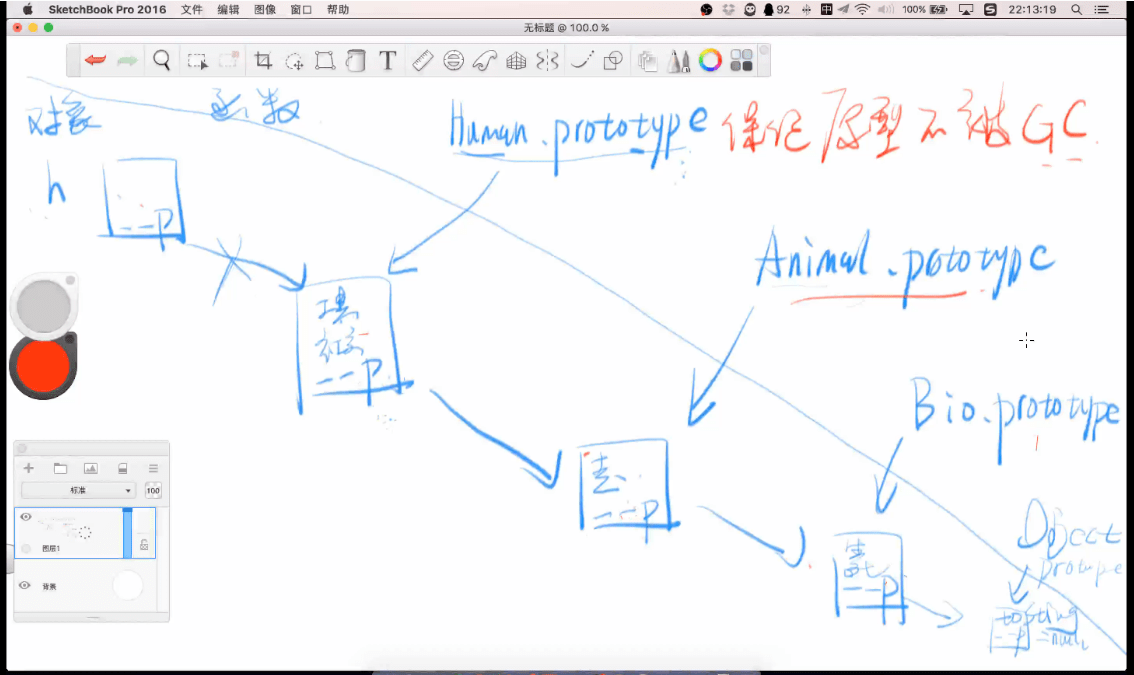 SketchBook Pro 2016 文件 编辑 图像 窗口 帮助 92 100% 22:13:19
无标题 @ 100.0 %
对象 函数
Human.prototype 保证原型不被GC
h
--P
Animal.prototype
--P
Bio.prototype
--P
--P
Object
prototype
toString
--P =null
标准
100
图层1
背景